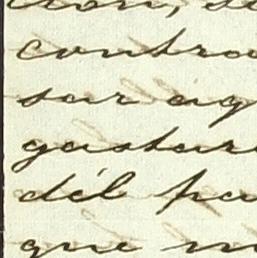 cion, se
contra
sar ag
gastar
dél pa
que m